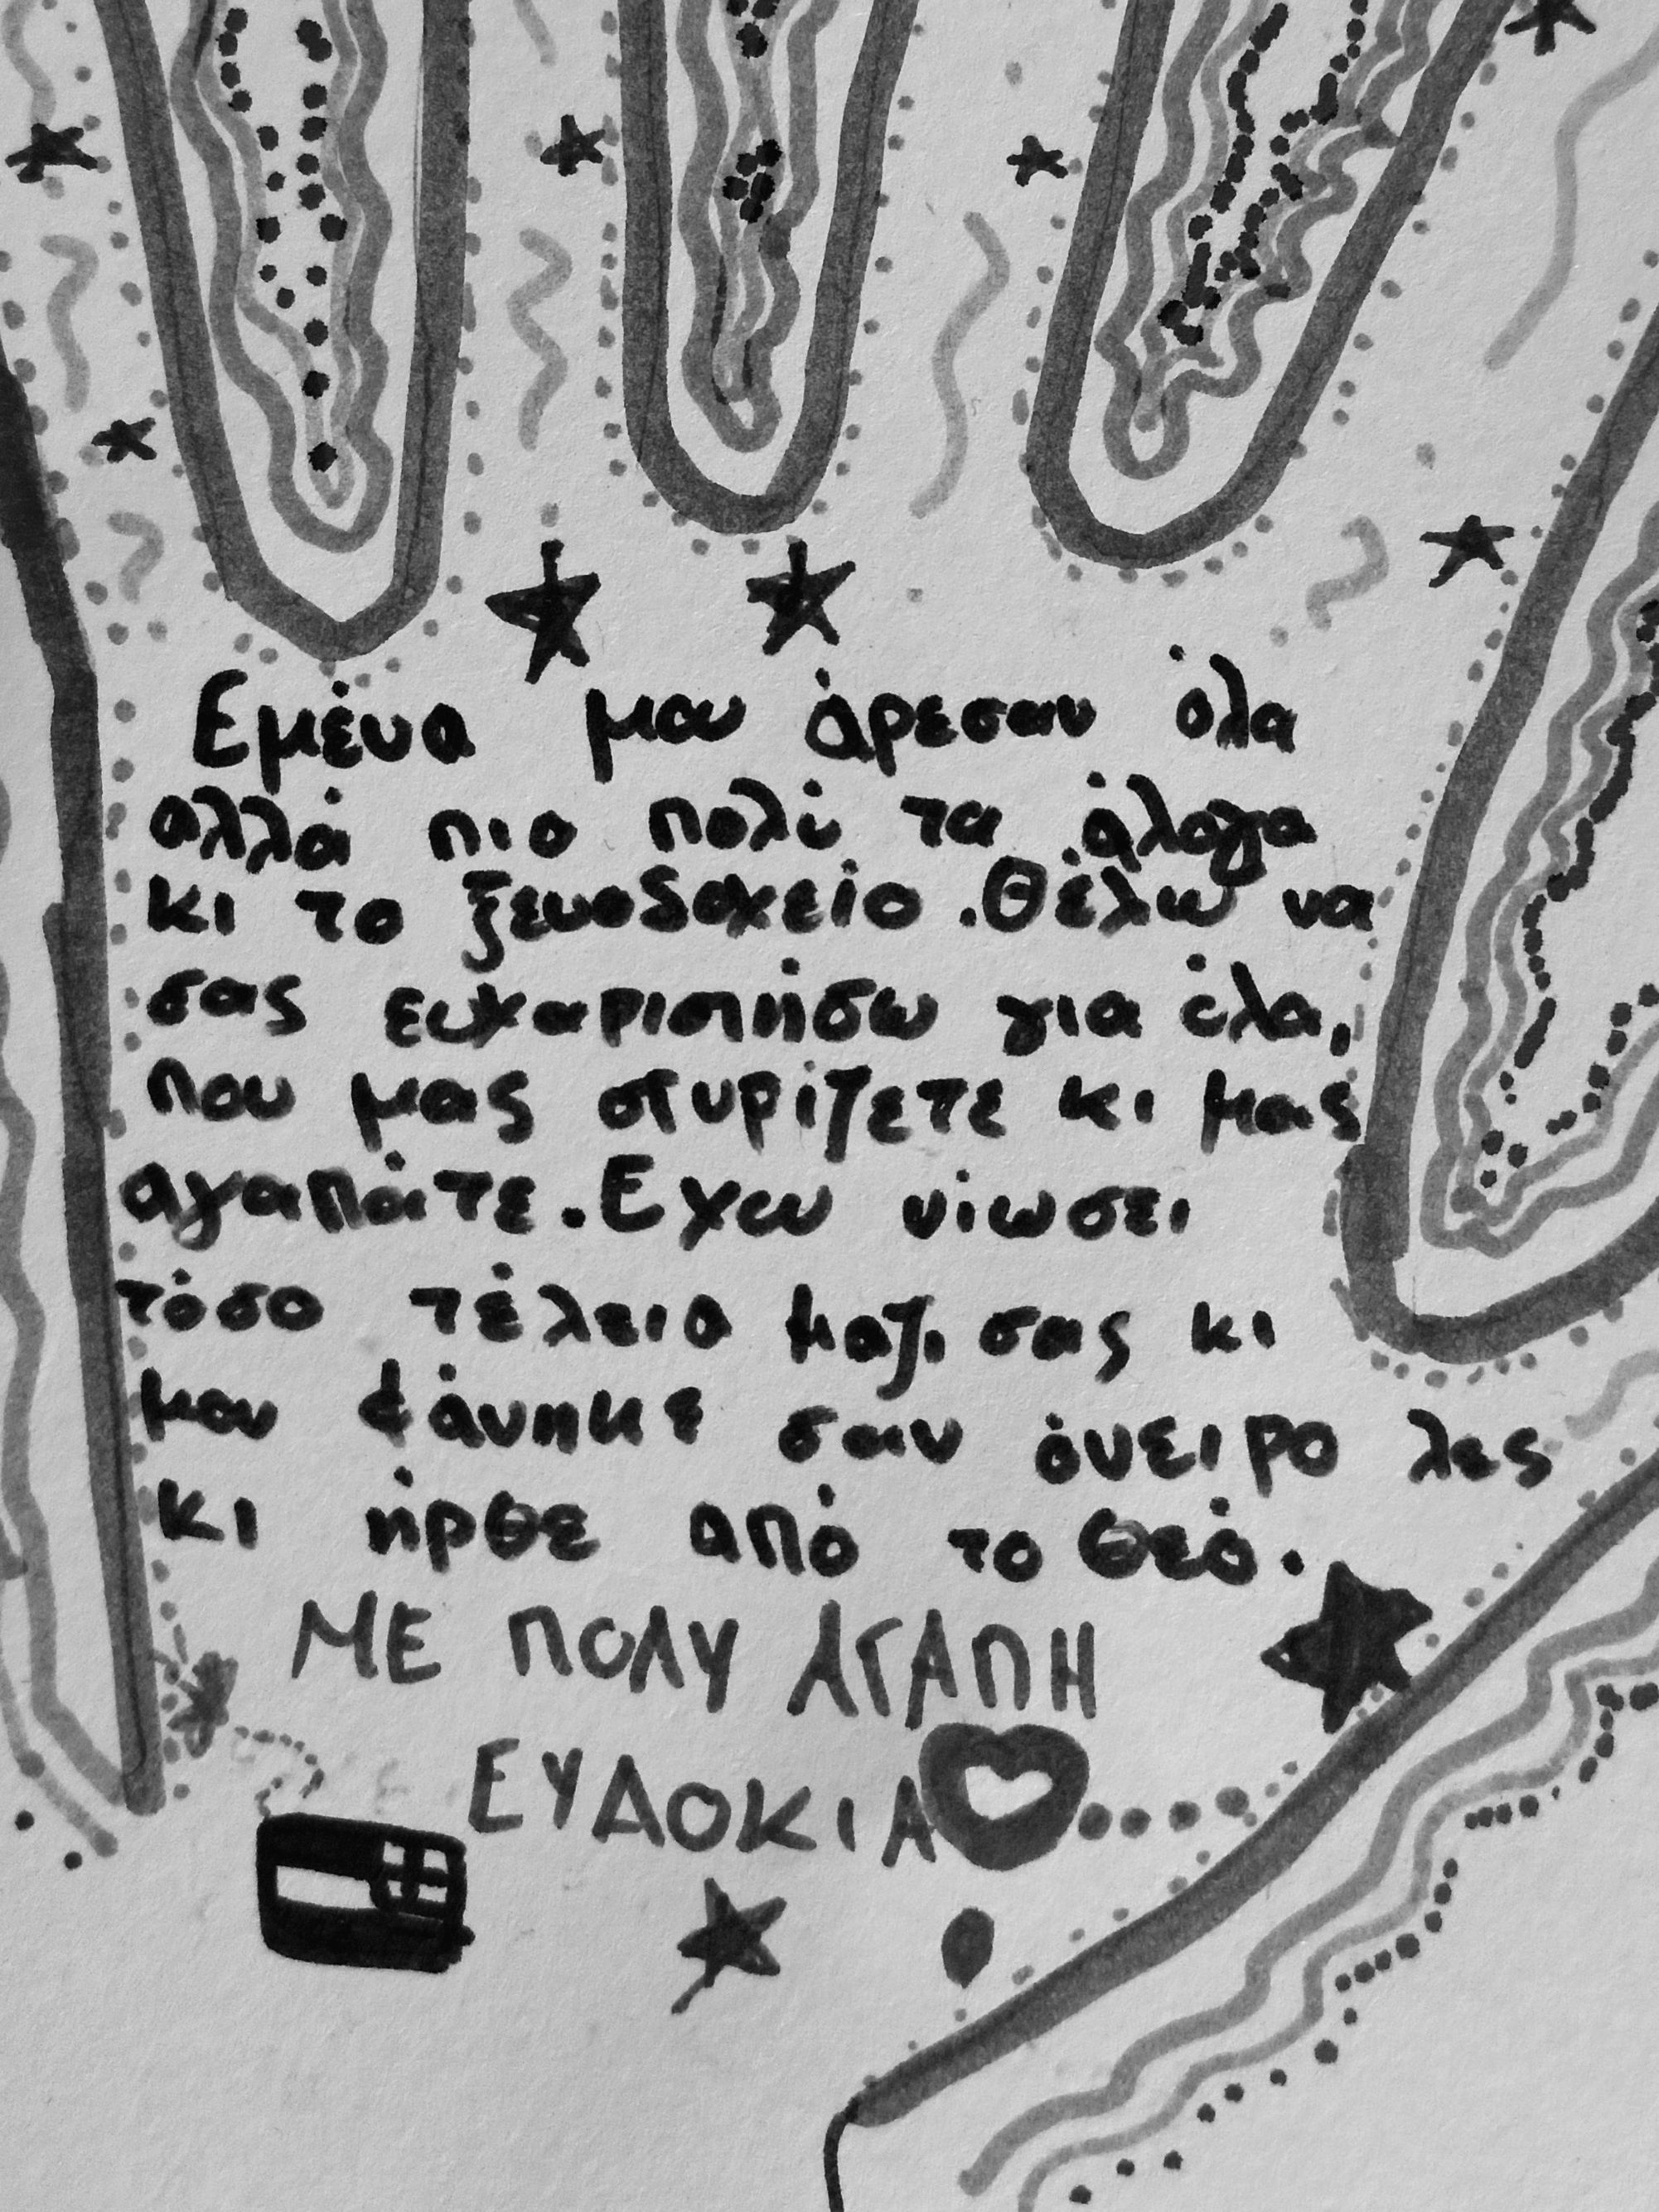 Εμένα μου άρεσαν όλα
αλλά πιο πολύ τα άλογα
κι το ξενοδοχείο. Θέλω να
σας ευχαριστήσω για όλα,
που μας στυρίζετε κι μας
αγαπάτε. Εχω νιώσει
τόσο τέλεια μαζί σας κι
μου φάνηκε σαν όνειρο λες
κι ήρθε από το θεό.
ΜΕ ΠΟΛΥ ΑΓΑΠΗ
ΕΥΔΟΚΙΑ